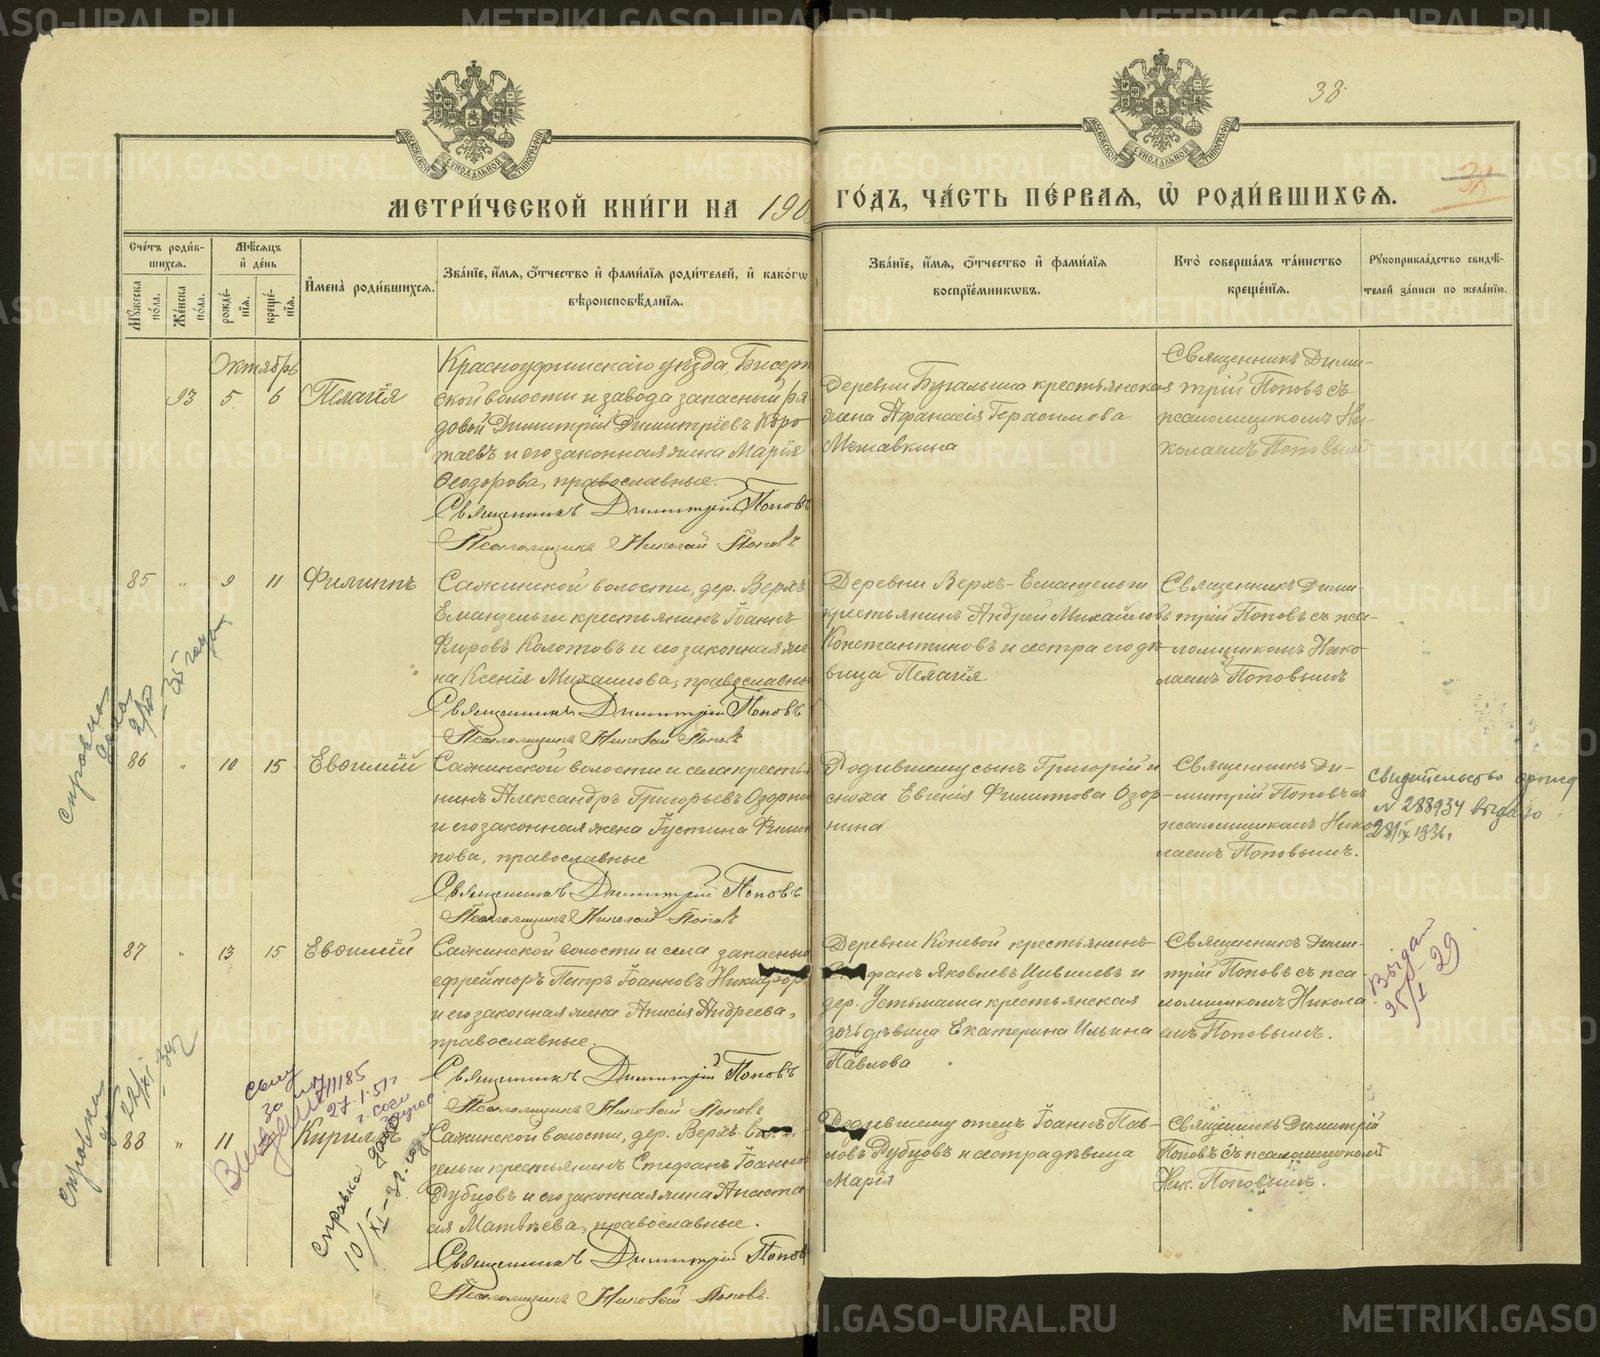 38
МЕТРИ́ЧЕСКОЙ КНИ́ГИ НА 190
ГО́ДЪ, ЧА́СТЬ ПЕ́РВАЯ, Ѡ҆ РОДИ́ВШИХСЯ.
Сче́тъ роди́в-
шихся.
Мѣ́сяцъ
и҆ де́нь
И҆мена̀ роди́вшихся.
Зва́нїе, и҆́мя, ѻ҆́тчество и҆ фами́лїя роди́телей, и҆ како́гѡ
вѣроисповѣ́данїя.
Зва́нїе, и҆́мя, ѻ҆́тчество и҆ фами́лїя
воспрїе́мникѡвъ.
Кто̀ соверша́лъ та́инство
креще́нїя.
Рꙋкоприкла́дство свидѣ́-
телей за́писи по жела́нїю.
Мꙋ́жеска
по́ла.
Же́нска
по́ла.
рожде́-
нїя.
креще́-
нїя.
Октябрь
93 5 6 Пелагія
Красноуфимскаго уѣзда Бисерт
ской волости и завода запасный ря
довой Димитрій Димитріевъ Коро
таевъ и его законная жена Марія
Ѳеодорова, православные.
Священникъ Димитрій Поповъ
Псаломщикъ Николай Поповъ
Деревни Бугалыша крестьянская
жена Афанасія Герасимова
Мезавкина
Священникъ Дими-
трій Поповъ съ
псаломщикомъ Ни-
колаемъ Поповымъ
85 " 9 11 Филиппъ
Сажинской волости, дер. Верхъ
Еманзельги крестьянинъ Іоаннъ
Егоровъ Колотовъ и его законная же
на Ксенія Михаилова, православны
Священникъ Димитрій Поповъ
Псаломщикъ Николай Поповъ
Деревни Верхъ-Еманзельги
крестьянинъ Андрей Михайловъ
Константиновъ и сестра его дѣ-
вица Пелагія
Священникъ Дими-
трій Поповъ съ пса-
ломщикомъ Нико-
лаемъ Поповымъ
86 " 10 15 Евѳимій
Сажинской волости и села крестья
нинъ Александръ Григорьевъ Озорни
и его законная жена Іустина Филип
пова, православные
Священникъ Димитрій Поповъ
Псаломщикъ Николай Поповъ
Родившему сынъ Григорій и
сноха Евгенія Филиппова Озор-
нина
Священникъ Ди-
митрій Поповъ съ
псаломщикомъ Нико
лаемъ Поповымъ.
Свидетельство
N 288934 выдано
28/IX 1936г
87 " 13 15 Евѳимій
Сажинской волости и села запасный
ефрейторъ Петръ Іоанновъ Никифор
и его законная жена Анисія Андреева,
православные.
Священникъ Димитрій Поповъ
Псаломщикъ Николай Поповъ
Деревни Коневой крестьянинъ
Стефанъ Яковлевъ Цивилевъ и
дер. Устьмаша крестьянская
дочь дѣвица Екатерина Ильина
Павлова
Священникъ Дими-
трій Поповъ съ пса
ломщикомъ Никола
емъ Поповымъ.
Выдан
25/I-29
88 " 11 Кириллъ
Сажинской волости, дер. Верхъ-
зельги крестьянинъ Стефанъ Іоанно
Рубцовъ и его законная жена Анаста
сія Матвѣева, православные.
Священникъ Димитрій Попов
Псаломщикъ Николай Поповъ.
Родившему отецъ Іоаннъ Пав-
ловъ Рубцовъ и сестра дѣвица
Марія
Священникъ Димитрій
Поповъ съ псаломщикомъ
Ник. Поповымъ.
Справка
дана
Справка
27.1.51г
Справка дана
10/XI-31 год
METRIKI.GASO-URAL.RU